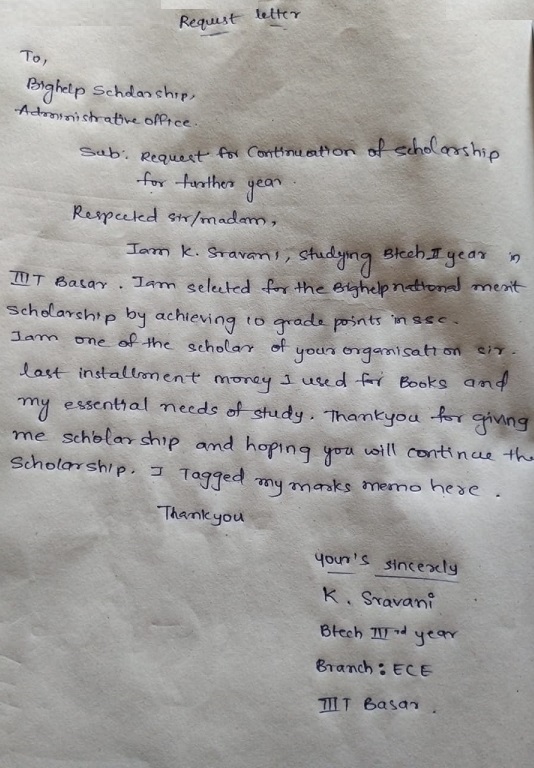 Request letter
To,
Bighelp Scholarship,
Administrative office.
Sub: Request for Continuation of scholarship
for further year.
Respected sir/madam,
Iam K. Sravani, studying Btech II year in
IIIT Basar. Iam selected for the Bighelp national merit
scholarship by achieving 10 grade points in ssc.
Iam one of the scholar of your organisation sir.
last installment money I used for Books and
my essential needs of study. Thankyou for giving
me scholarship and hoping you will continue the
Scholarship. I Tagged my marks memo here.
Thankyou
your's sincerely
K. Sravani
Btech IIIrd year
Branch: ECE
IIIT Basar.